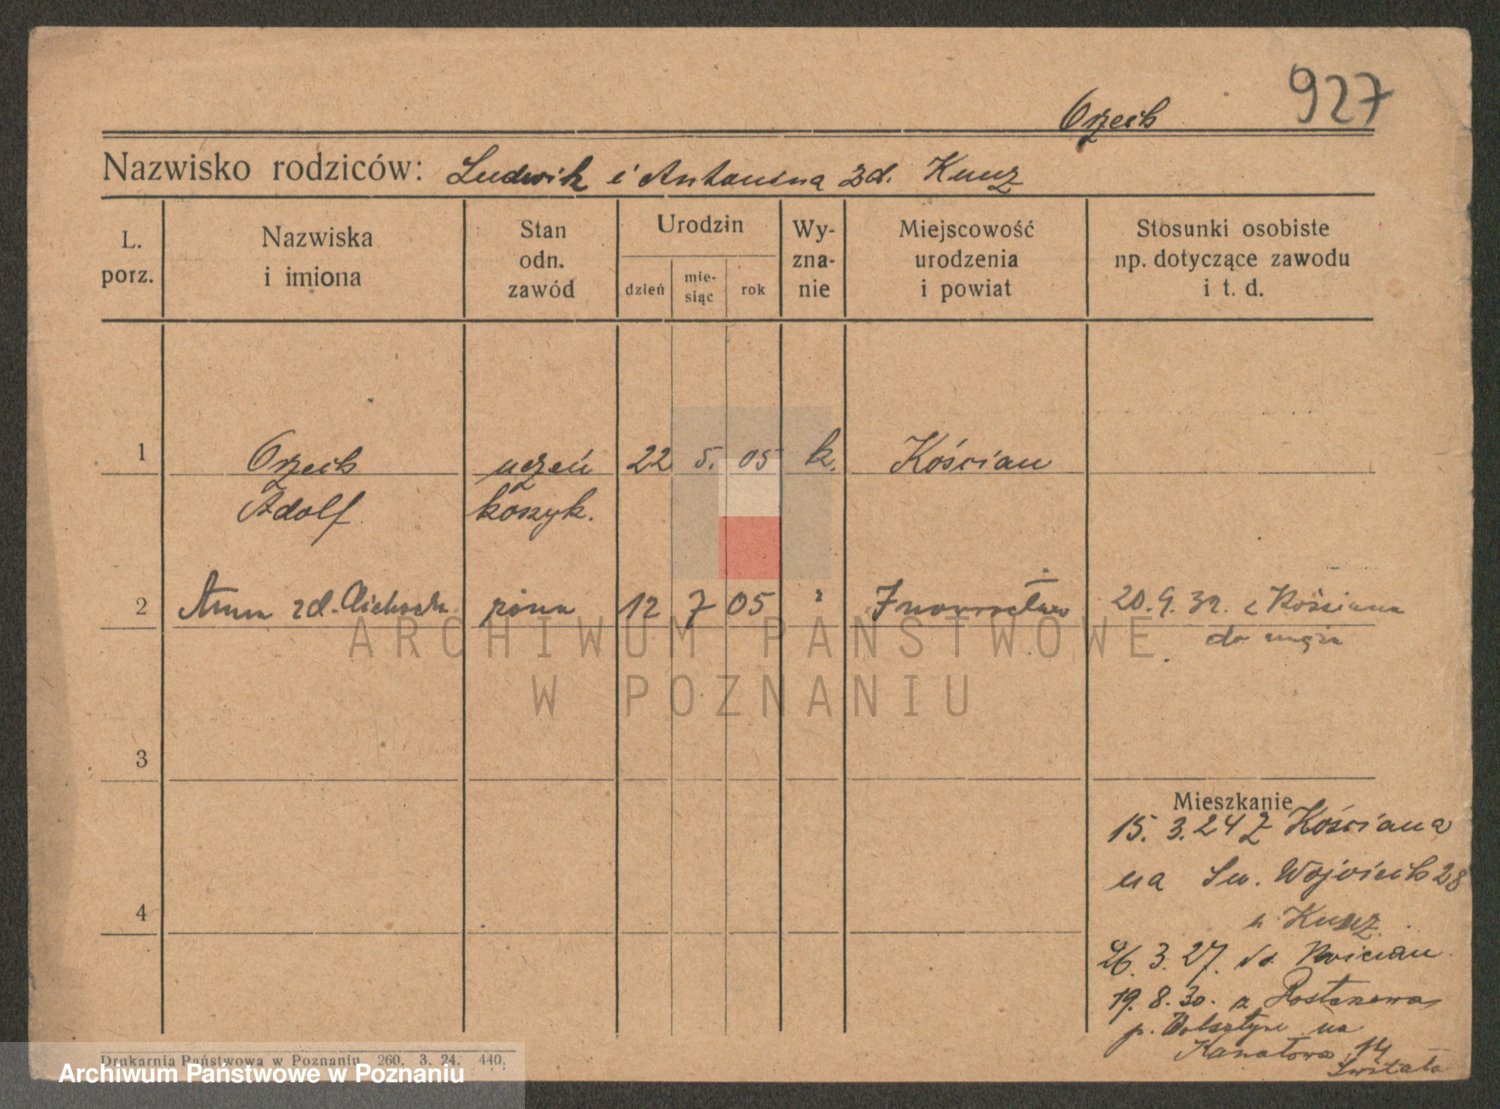 927
Orzech
Nazwisko rodziców: Ludwik i Antonina zd. Kunz
L. porz.
Nazwiska i imiona
Stan odn. zawód
Urodzin
dzień
mie-siąc
rok
Wy-zna-nie
Miejscowość urodzenia i powiat
Stosunki osobiste np. dotyczące zawodu i t. d.
1 Orzech uczeń 22 5. 05 k. Kościan
Adolf koszyk.
2 Anna zd. żona 12 7 05 Inowrocław 20.9.32. z Kościana
do męża
ARCHIWUM PAŃSTWOWE
W POZNANIU
3
4
Mieszkanie
15. 3. 24 z Kościana
na Św. Wojciech 28
u Kunz.
26. 3. 27. do Kościan
19. 8. 30. z
p. Wolsztyn na
Kanałowa 14
Świtała
Drukarnia Państwowa w Poznaniu 260. 3. 24. 440.
Archiwum Państwowe w Poznaniu